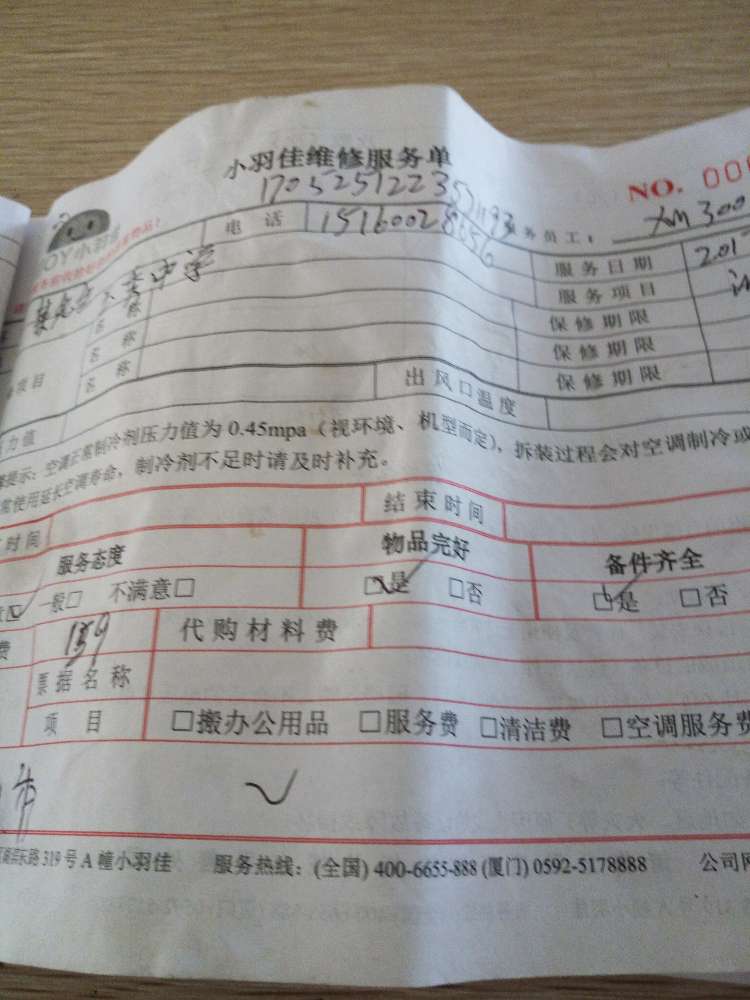 小羽佳维修服务单
NO. 00
17052512235
电 话 务员工: XM300
JOY小羽佳 服务日期 201
中学 服务项目
名 称 保修期限
名 称 保修期限
项目 名 称 保修期限
力值 出风口温度
提示:空调正常制冷剂压力值为 0.45mpa(视环境、机型而定),拆装过程会对空调制冷或
常使用延长空调寿命,制冷剂不足时请及时补充。
时间 结束时间
服务态度 物品完好 备件齐全
一般□ 不满意□ □是 □否 □是 □否
费 159 代购材料费
票据名称
项 目 □搬办公用品 □服务费 □清洁费 □空调服务费
东路 319 号 A 幢小羽佳 服务热线:(全国) 400-6655-888 (厦门) 0592-5178888 公司网